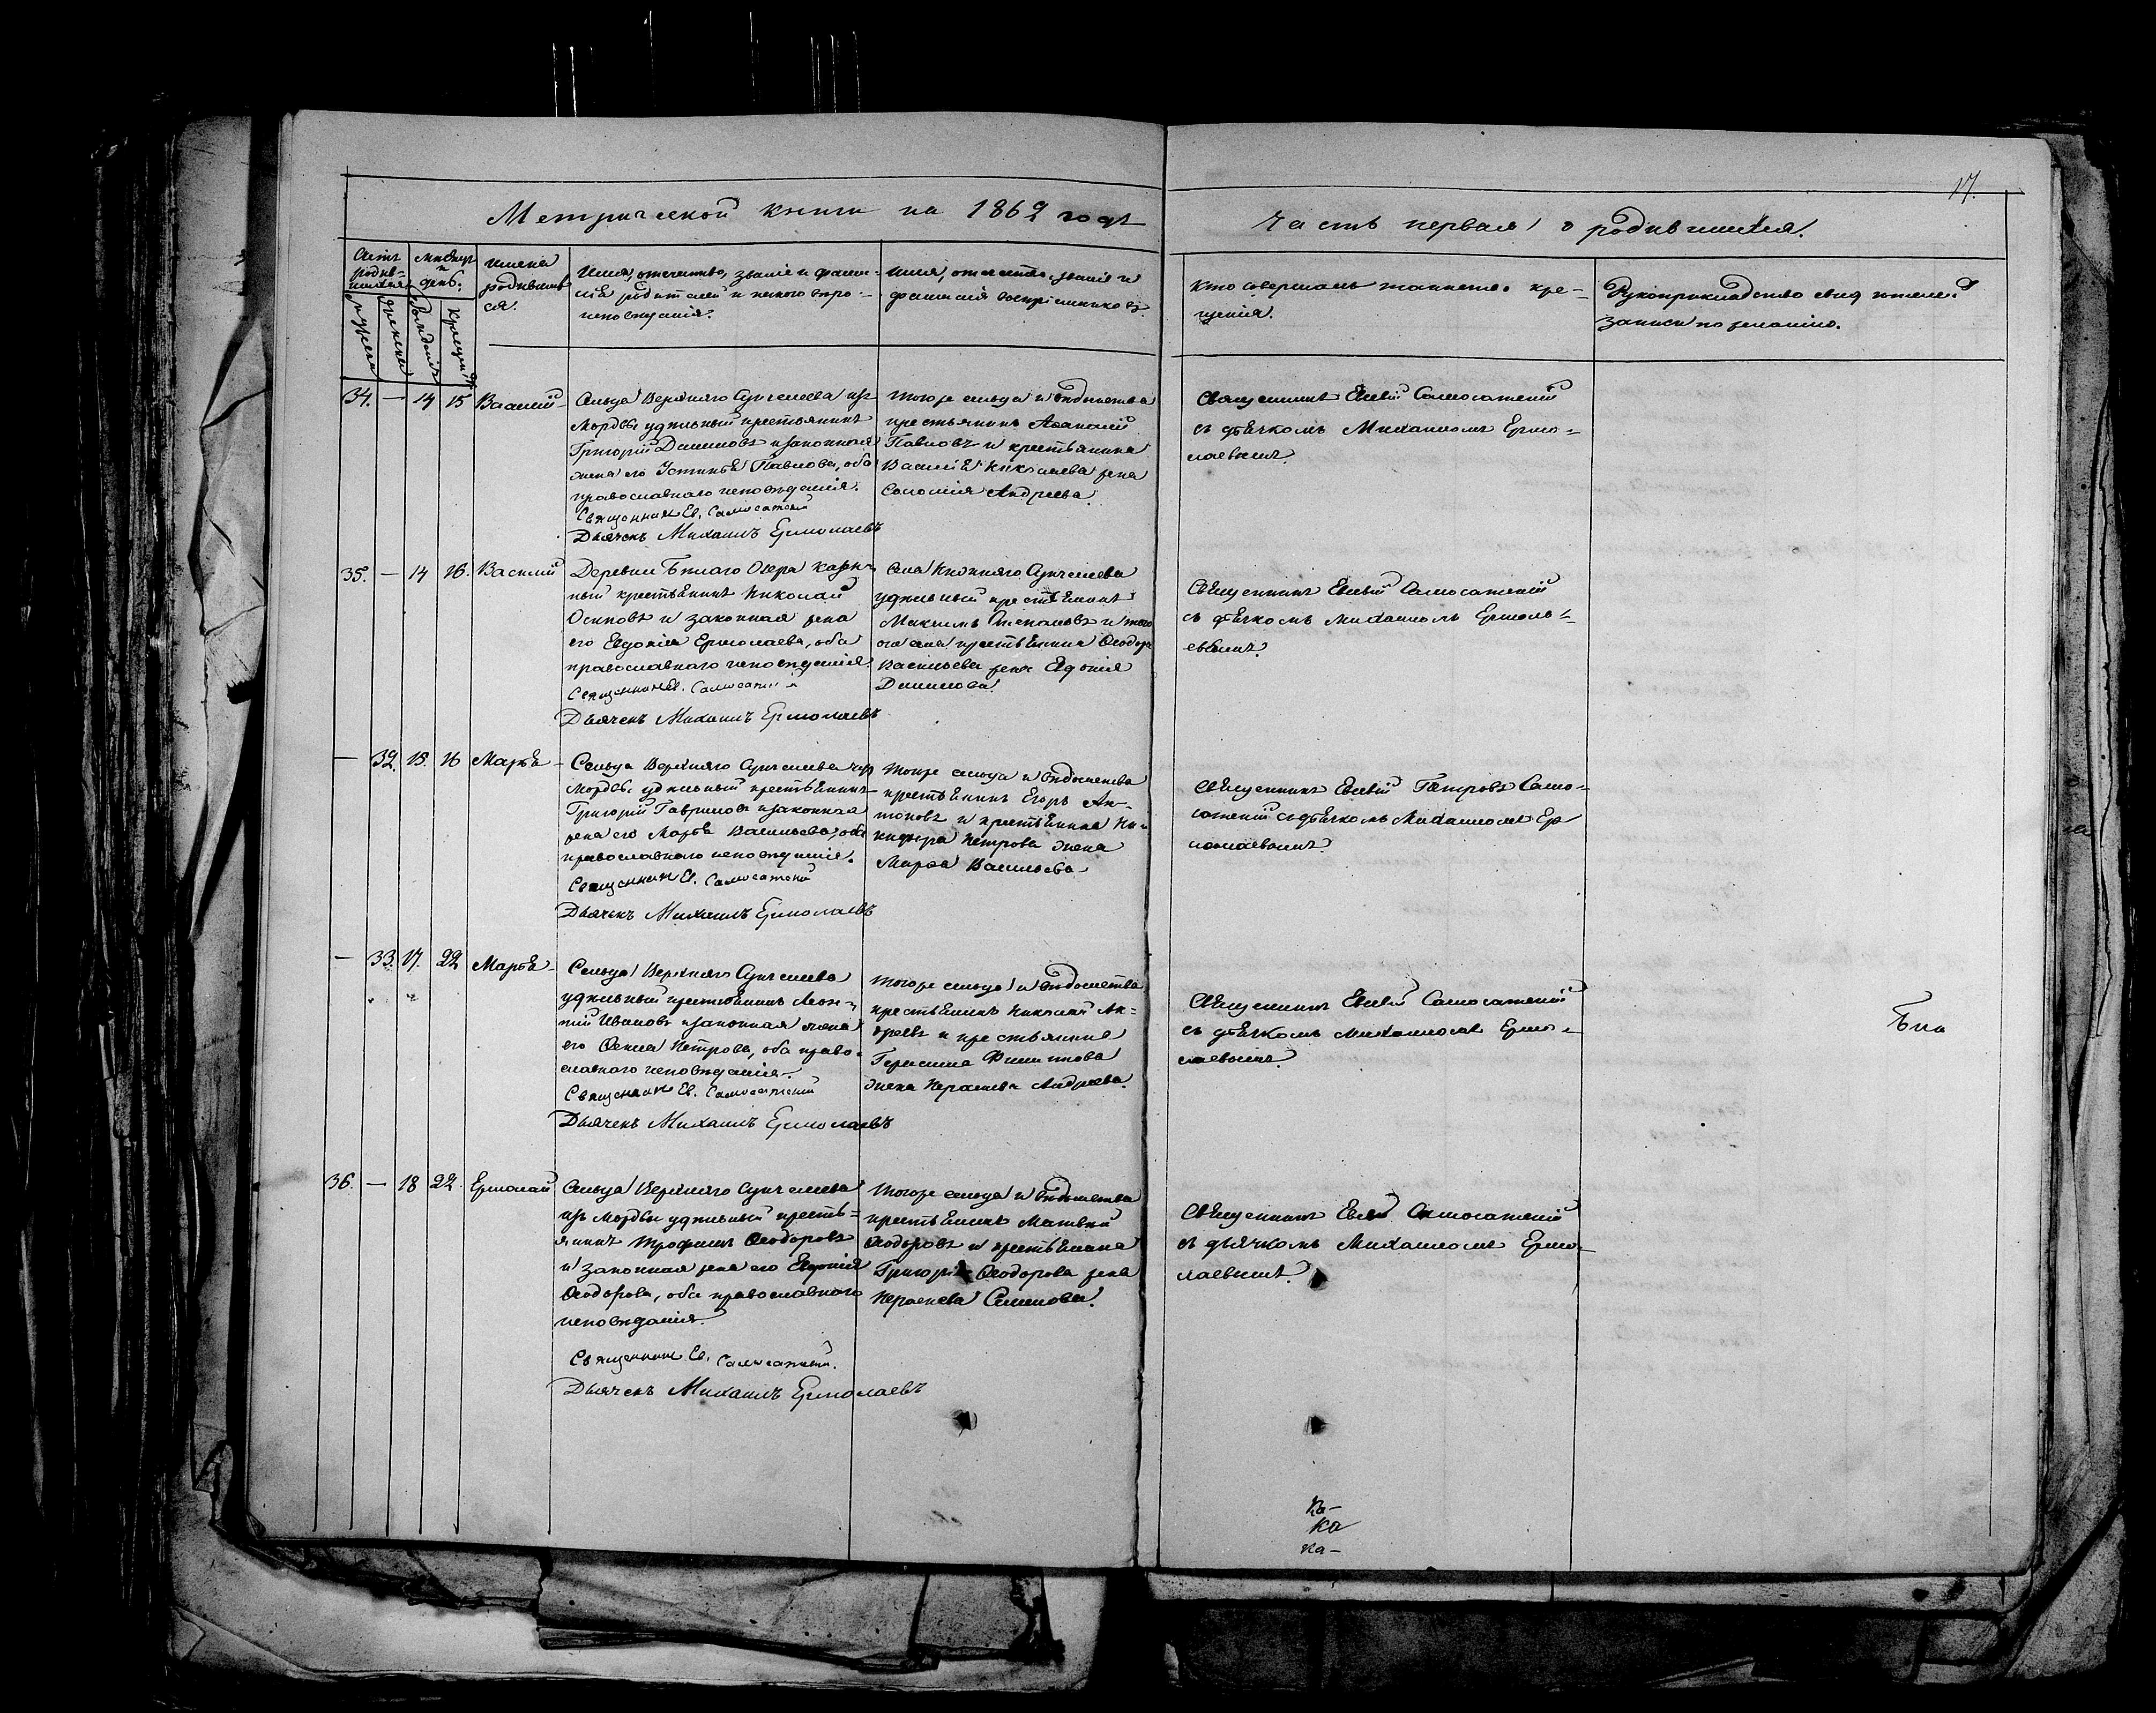 17.
Метрической книги на 1862 годъ
Часть первая о родившихся.
Счетъ родив-
шихся
Мѣсяцъ и
день.
Имена
родивших
ся.
Имя, отчество, званіе и фами-
лія родителей и какого вѣро-
исповѣданія.
Имя, отчество, званіе и
фамилія воспріемниковъ.
Кто совершалъ таинство кре-
щенія.
Рукоприкладство свидѣтелей
записи по желанію.
34. — 14 15 Василій
Сельца Верхняго Сунгелеева изъ
Мордвы удѣльный крестьянинъ
Григорій Даниловъ и законная
жена его Устинья Павлова, оба
православнаго исповѣданія.
Священникъ Ев. Самосатскій
Дьячекъ Михаилъ Ермолаевъ
Тогоже сельца и вѣдомства
крестьянинъ Аѳанасій
Павловъ и крестьянина
Василія Николаева жена
Соломія Андреева.
Священникъ Евсевій Самосатскій
съ дьячкомъ Михаиломъ Ермо-
лаевымъ.
35. — 14 16. Василій
Деревни Бѣлаго Озера казен-
ный крестьянинъ Николай
Осиповъ и законная жена
его Евдокія Ермолаева, оба
православнаго исповѣданія.
Священникъ Ев. Самосатскій
Дьячекъ Михаилъ Ермолаевъ
Села Нижняго Сунгелеева
удѣльный крестьянинъ
Максимъ Степановъ и того
же села крестьянина Ѳеодора
Васильева жена Евдокія
Данилова.
Священникъ Евсевій Самосатскій
съ дьячкомъ Михаиломъ Ермола-
евымъ.
— 32. 15. 16 Марѳа
Сельца Верхняго Сунгелеева изъ
Мордвы удѣльный крестьянинъ
Григорій Гавриловъ и законная
жена его Марѳа Васильева, оба
православнаго исповѣданія.
Священникъ Ев. Самосатскій
Дьячекъ Михаилъ Ермолаевъ
Тогоже сельца и вѣдомства
крестьянинъ Егоръ Ан-
тоновъ и крестьянина Ни-
кифора Петрова жена
Марѳа Васильева
Священникъ Евсевій Петровъ Само-
сатскій съ дьячкомъ Михаиломъ Ер-
молаевымъ.
— 33. 17. 22 Марѳа
Сельца Верхняго Сунгелеева
удѣльный крестьянинъ Леон-
тій Ивановъ и законная жена
его Ѳекла Петрова, оба право-
славнаго исповѣданія.
Священникъ Ев. Самосатскій
Дьячекъ Михаилъ Ермолаевъ
Тогоже сельца и вѣдомства
крестьянинъ Николай Ан-
дреевъ и крестьянина
Герасима Филиппова
жена Параскева Андреева.
Священникъ Евсевій Самосатскій
съ дьячкомъ Михаиломъ Ермо-
лаевымъ.
36. — 18 22. Ермолай
Сельца Верхняго Сунгелеева
изъ Мордвы удѣльный кресть-
янинъ Трофимъ Ѳеодоровъ
и законная жена его Евдокія
Ѳеодорова, оба православнаго
исповѣданія.
Священникъ Ев. Самосатскій.
Дьячекъ Михаилъ Ермолаевъ
Тогоже сельца и вѣдомства
крестьянинъ Матвей
Ѳеодоровъ и крестьянина
Григорія Ѳеодорова жена
Параскева Семенова.
Священникъ Евсевій Самосатскій
съ дьячкомъ Михаиломъ Ермо-
лаевымъ.
ка-